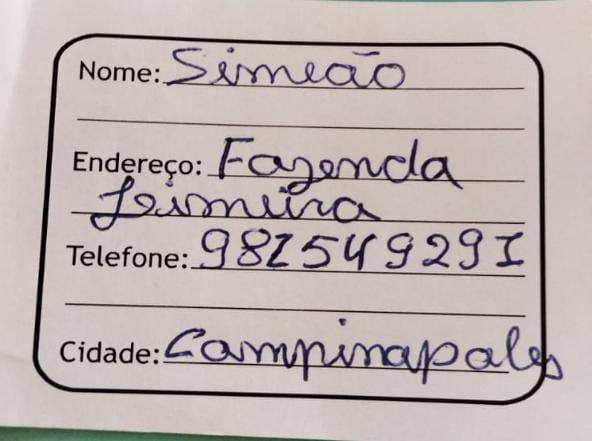 Nome: Simeão
Endereço: Fazenda
Teimeira
Telefone: 981549291
Cidade: Campinapales